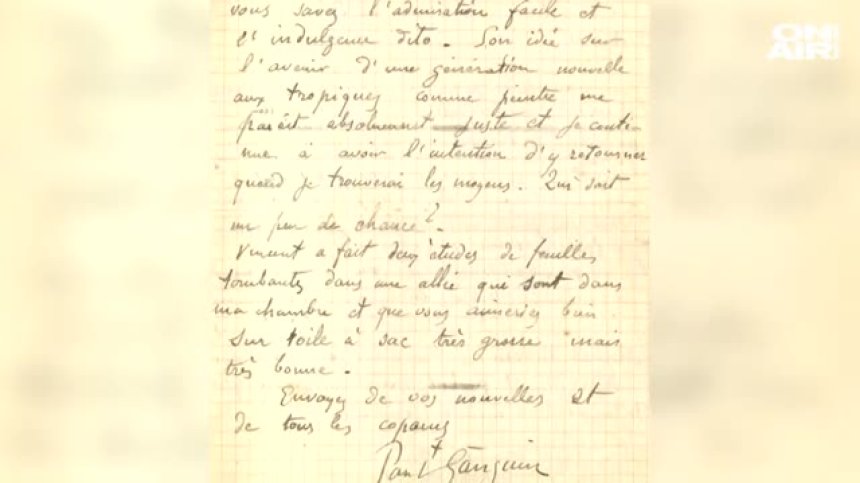 ON AIR
vous savez l'admiration facile et
l'indulgence dito. Son idée sur
l'avenir d'une génération nouvelle
aux tropiques comme peintre me
paraît absolument juste et je conti
nue à avoir l'intention d'y retourner
quand je trouverai les moyens. Qui sait
un peu de chance?.
Vincent a fait deux études de feuilles
tombantes dans une allée qui sont dans
ma chambre et que vous aimeriez bien
sur toile à sac très grosse mais
très bonne.
Envoyez de vos nouvelles et
de tous les copains
Paul Gauguin